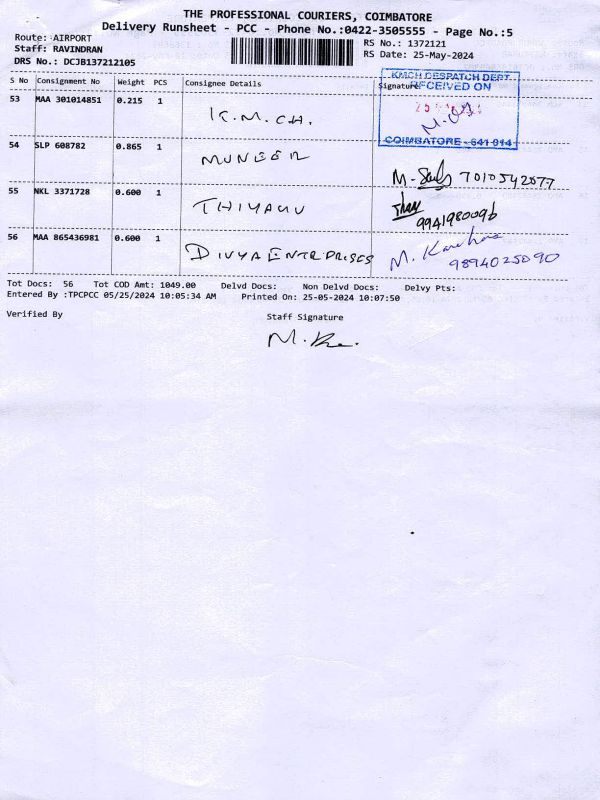 THE PROFESSIONAL COURIERS, COIMBATORE
Delivery Runsheet - PCC - Phone No.:0422-3505555 - Page No.:5
Route: AIRPORT
Staff: RAVINDRAN
DRS No.: DCJB137212105
RS No.: 1372121
RS Date: 25-May-2024
S No Consignment No Weight PCS Consignee Details Signature
KMCH DESPATCH DEPT
RECEIVED ON
COIMBATORE - 641 014
53 MAA 301014851 0.215 1 K.M.CH.
54 SLP 608782 0.865 1 MUNEER
7010542877
55 NKL 3371728 0.600 1 THIYAGU
9941980096
56 MAA 865436981 0.600 1 DIVYA ENTERPRISES
9894025090
Tot Docs: 56 Tot COD Amt: 1049.00 Delvd Docs: Non Delvd Docs: Delvy Pts:
Entered By :TPCPCC 05/25/2024 10:05:34 AM Printed On: 25-05-2024 10:07:50
Verified By Staff Signature